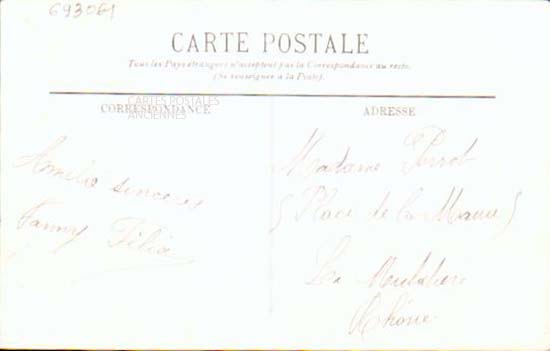 693061
CARTE POSTALE
Tous les Pays étrangers n'acceptent pas la Correspondance au recto.
(Se renseigner à la Poste).
CORRESPONDANCE
ADRESSE
CARTES POSTALES
ANCIENNES
Amelie sinceres
Fanny
Madame Perrot
(Place de la Mairie)
La
Rhône